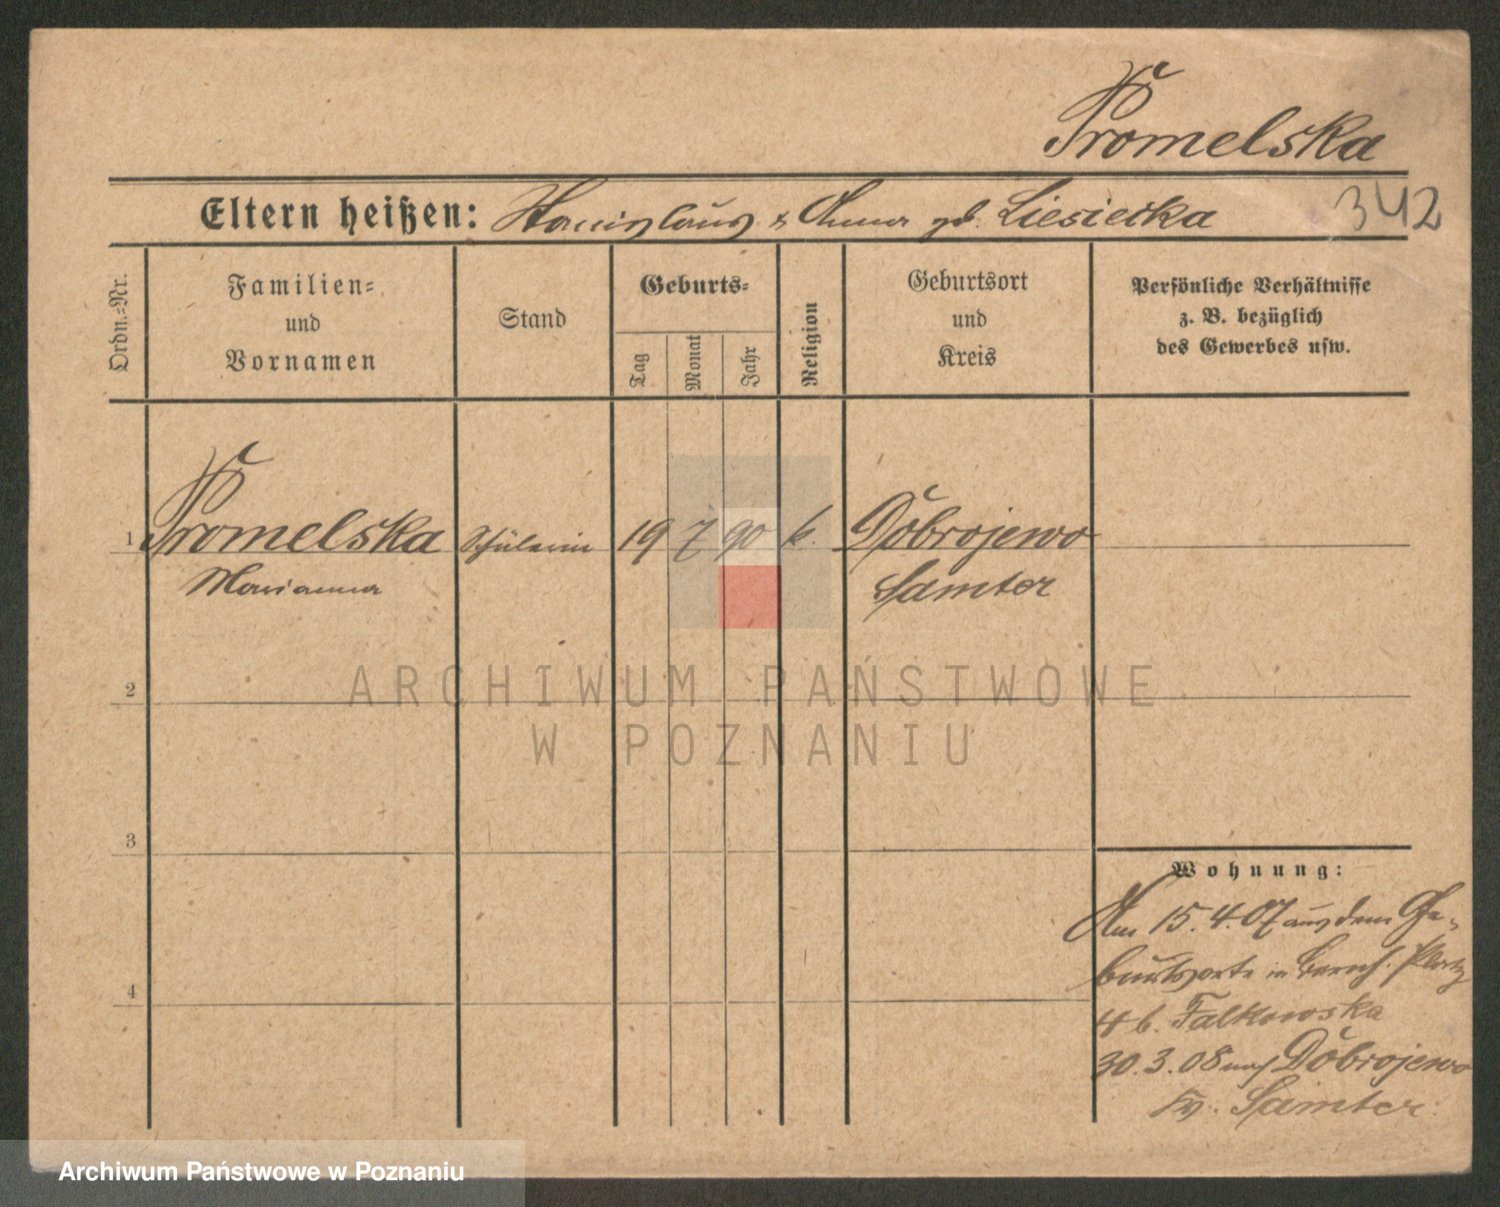 Promelska
342
Eltern heißen: Stanislaus & Anna gb. Liesiecka
Ordn.=Nr.
Familien=
und
Vornamen
Stand
Geburts=
Tag
Monat
Jahr
Religion
Geburtsort
und
Kreis
Persönliche Verhältnisse
z. B. bezüglich
des Gewerbes usw.
1 Promelska Schülerin 19 7 90 k. Dobrojewo
Marianna Samter
ARCHIWUM PAŃSTWOWE
W POZNANIU
2
3
4
Wohnung:
Am 15.4.07 aus dem Ge-
burtsorte in Bernh. Platz
4 b. Falkowska
30.3.08 nach Dobrojewo
Kr. Samter
Archiwum Państwowe w Poznaniu